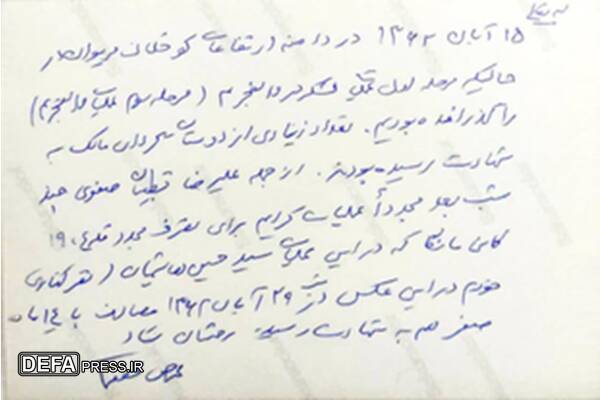 ۱۵ آبان ۱۳۶۲ در دامنه ارتفاعات کوهستانی مریوان در
حالیکه مرحله اول عملیات لشکر در والفجر ۴ (مرحله سوم عملیات والفجر ۴)
را گذرانده بودیم. تعداد زیادی از دوستان گردان مالک به
شهادت رسیده بودند. از جمله علیرضا صفوی چند
شب بعد مجدداً عملیات کردیم برای تصرف مجدد قله ۱۹۰۴
کانی مانگا که در این عملیات سید حسین هاشمیان (نفر کناری
خودم در این عکس) در ۲۹ آبان ۱۳۶۲ مصادف با ۱۴ ماه
صفر هم به شهادت رسید. روحشان شاد
DEFAPRESS.IR